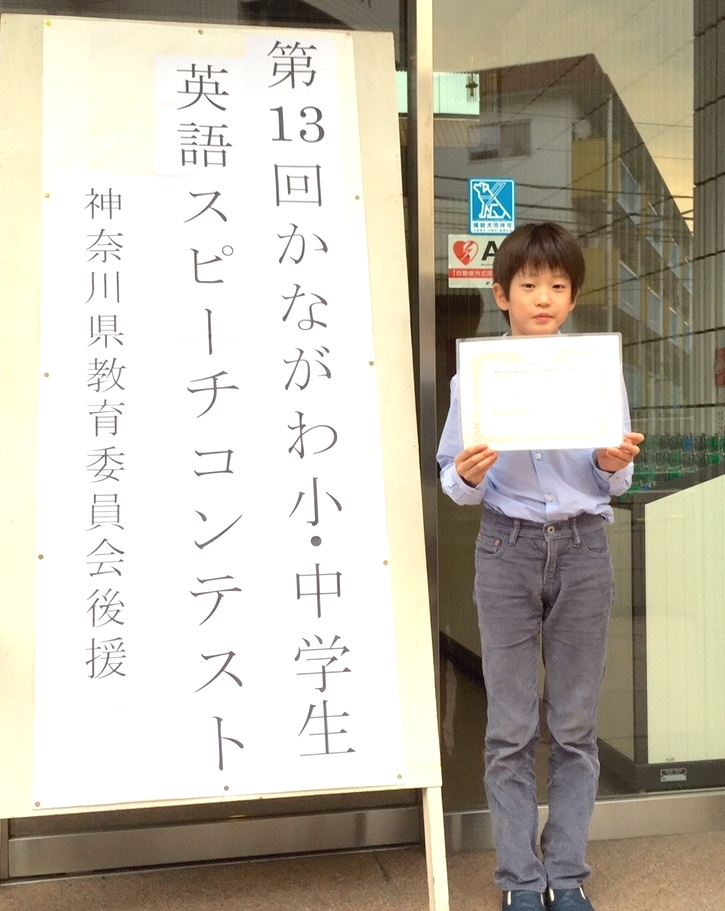 第13回かながわ小・中学生
英語スピーチコンテスト
神奈川県教育委員会後援
補助犬同伴可
A